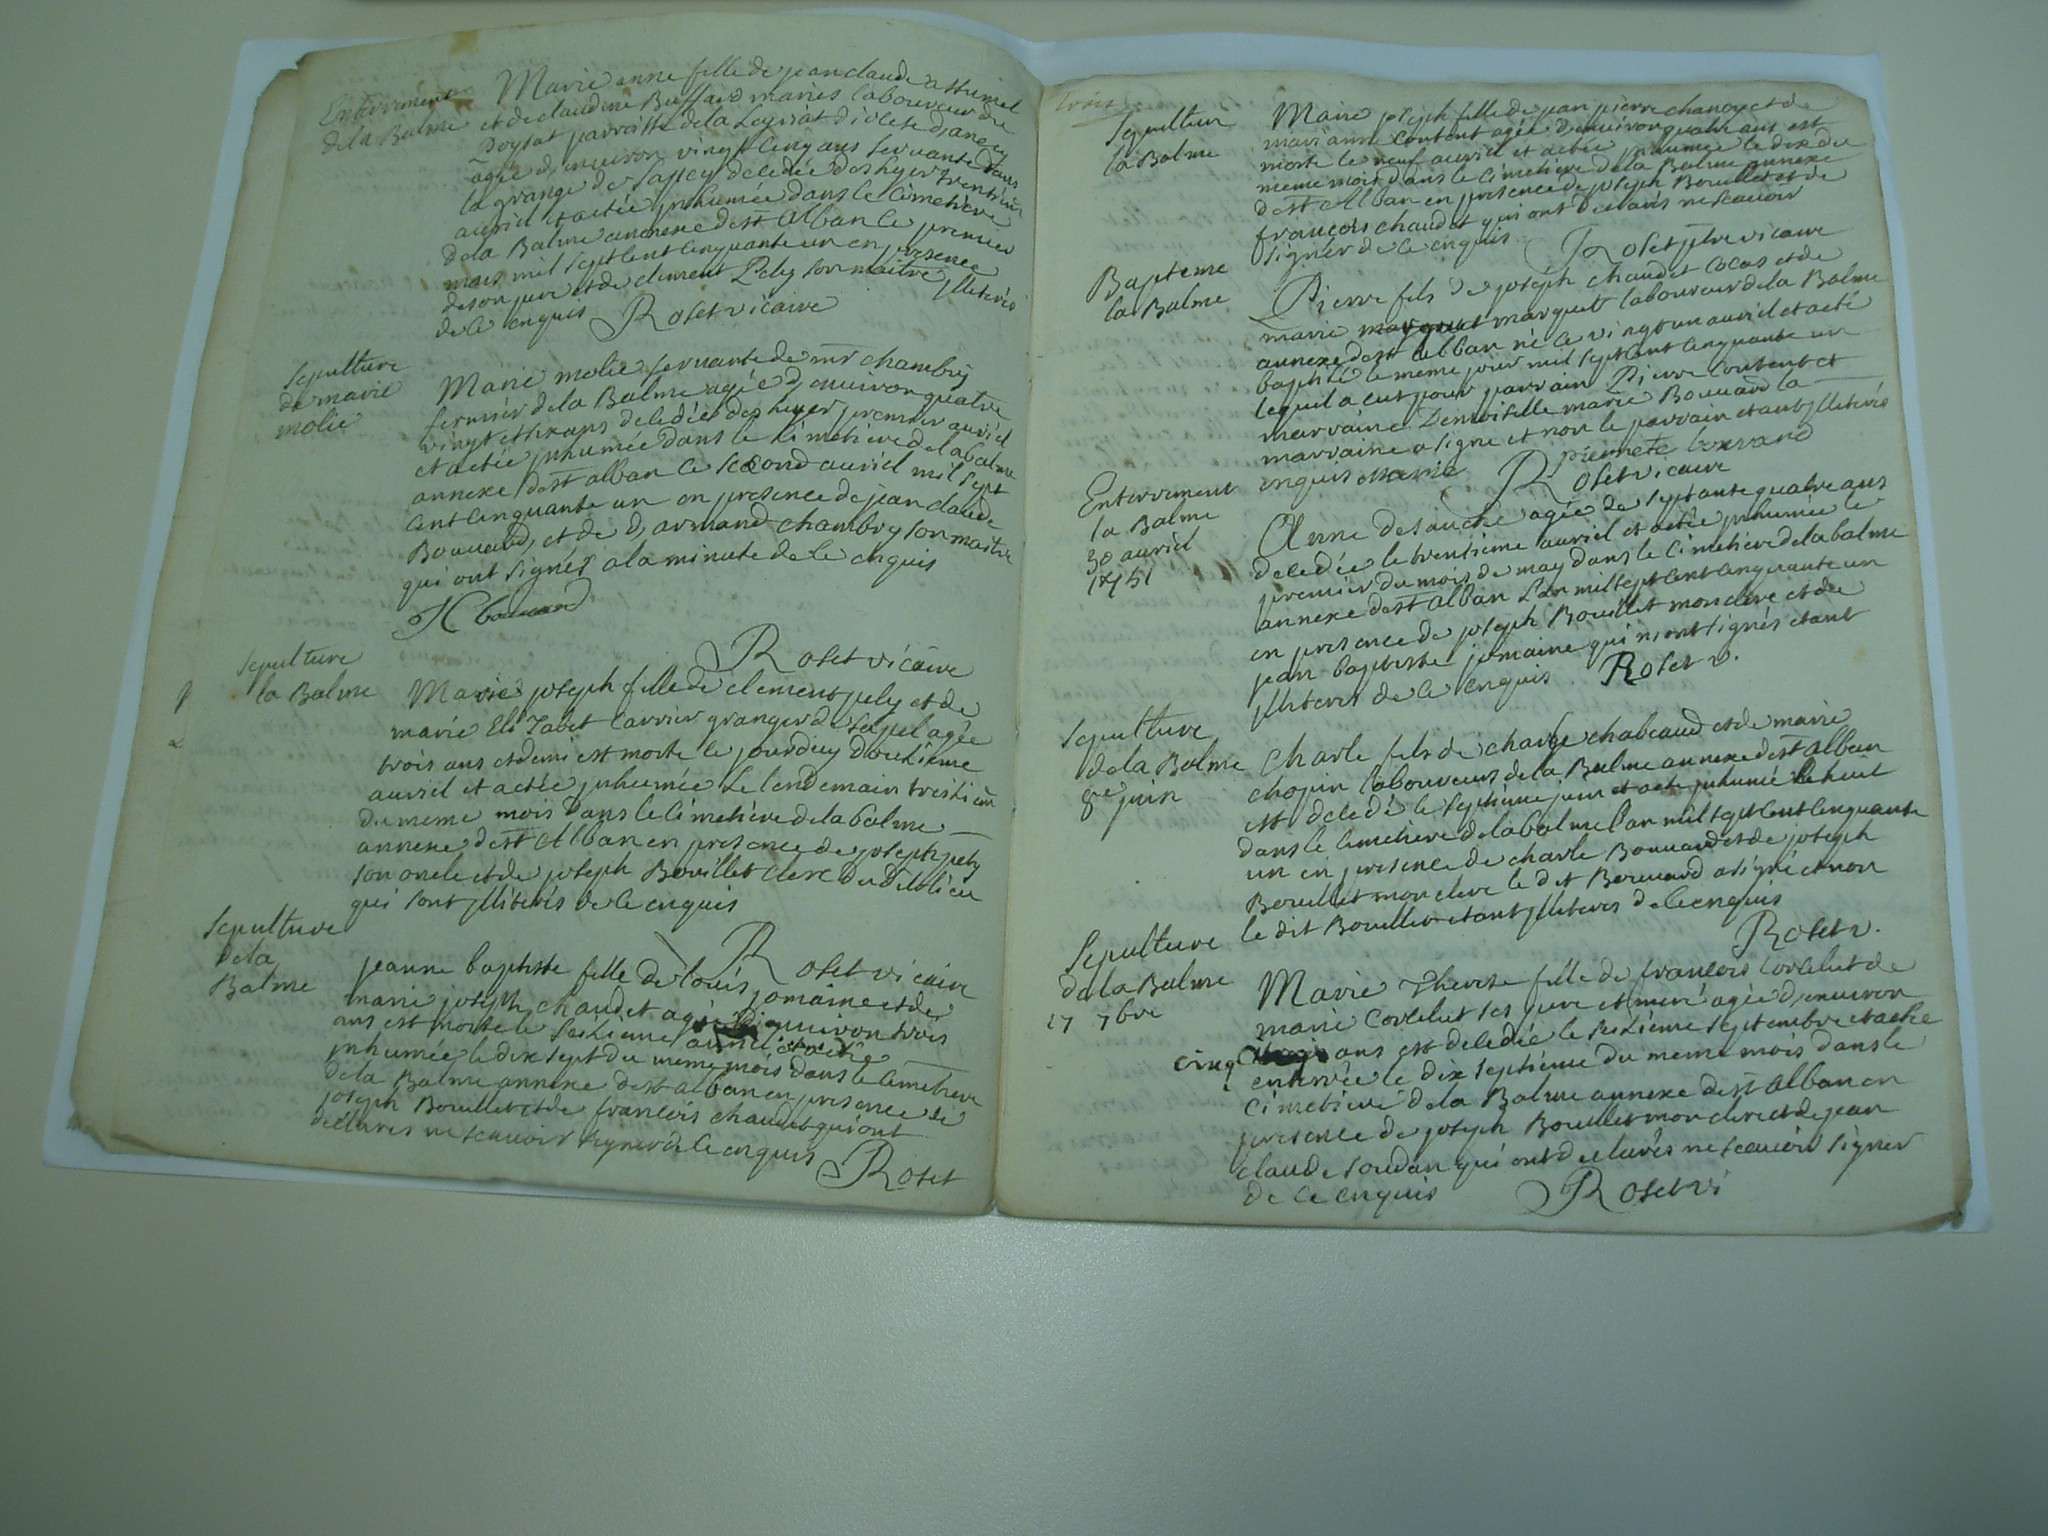 Enterrement
de la Balme
Marie anne fille de jean claude
et de claudine Buffard mariés laboureur de
Doysat parroisse de la Leyriat diocese d'anecy
agée d'environ vingt cinq ans servante dans
la grange de sapey decedée des hyer trentieme
avril et a etée inhumée dans le cimetiere
de la Balme annexe de st Alban le premier
mais mil sept cent cinquante un en presence
de son pere et de clement Pely son maitre illiterés
de ce enquis Roset vicaire
Sepulture
de marie
molie
Marie molie servante de mr chambry
fermier de la Balme agée d'environ quatre
vingt et six ans decedée des hyer premier avril
et a etée inhumée dans le cimetiere de la balme
annexe de st alban le second avril mil sept
cent cinquante un en presence de jean claude
Bouvard, et de d, armand chambry son maitre
qui ont signés a la minute de ce enquis
JC bouvard
Roset vicaire
Sepulture
la Balme
Marie joseph fille de clement pely et de
marie Elizabet Carrier granger de sapel agée
trois ans et demi est morte le jourduy douzieme
avril et a etée inhumée le lendemain treizieme
du meme mois dans le cimetiere de la balme
annexe de st Alban en presence de joseph pely
son oncle et de joseph Bouillet clerc du dit lieu
qui sont illiterés de ce enquis
Roset vicaire
Sepulture
de la
Balme
jeanne baptiste fille de louis jomaine et de
marie joseph chaudet agée d'environ trois
ans est morte le seizieme avril et a etée
inhumée le dix sept du meme mois dans le cimetiere
de la Balme annexe de st alban en presence de
joseph Bouillet et de francois chaudet qui ont
déclarés ne scavoir signer de ce enquis
Roset
trois
Sepultur
la Balme
Marie joseph fille de jean pierre chanoy et de
mari anne Content agée d'environ quatre ans est
morte le neuf avril et a etée inhumée le dix du
meme mois dans le cimetiere de la Balme annexe
de st Alban en presence de joseph Bouillet et de
françois chaudet qui ont declarés ne scavoir
signer de ce enquis Roset ptre vicaire
Bapteme
la Balme
Pierre fils de joseph chaudet cocas et de
marie marguet laboureur de la Balme
annexe de st alban né le vingt un avril et a eté
baptisé le meme jour mil sept cent cinquante un
lequel a eut pour parrain Pierre Content et
marraine Demoiselle marie Bouvard la
marraine a signé et non le parrain etant illiterés
enquis marie pierrette bouvard
Roset vicaire
Enterrement
la Balme
30 avril
1751
Anne desauche agée de septante quatre ans
decedée le trentieme avril et a etée inhumée le
premier du mois de may dans le cimetiere de la balme
annexe de st Alban L'an mil sept cent cinquante un
en presence de joseph Bouillet mon clerc et de
jean baptiste jomaine qui n'ont signés etant
illiterés de ce enquis Roset v.
Sepulture
de la Balme
8me juin
Charle fils de charle chabeaud et de marie
chopin laboureurs de la Balme annexe de st Alban
est decedé le septieme juin et a eté inhumé le huit
dans le cimetiere de la balme l'an mil sept cent cinquante
un en presence de charle Bouvard et de joseph
Bouillet mon clerc le dit Bouvard a signé et non
le dit Bouillet etant illiterés de ce enquis
Roset v.
Sepulture
de la Balme
17 7bre
Marie Therese fille de françois Corcelut de
marie Corcelut ses pere et mere agée d'environ
cinq ans est decedée le seizieme septembre et a eté
enterrée le dix septieme du meme mois dans le
cimetiere de la Balme annexe de st Alban en
presence de joseph Bouillet mon clerc et de jean
claude soudan qui ont declarés ne scavoir signer
de ce enquis Roset vi